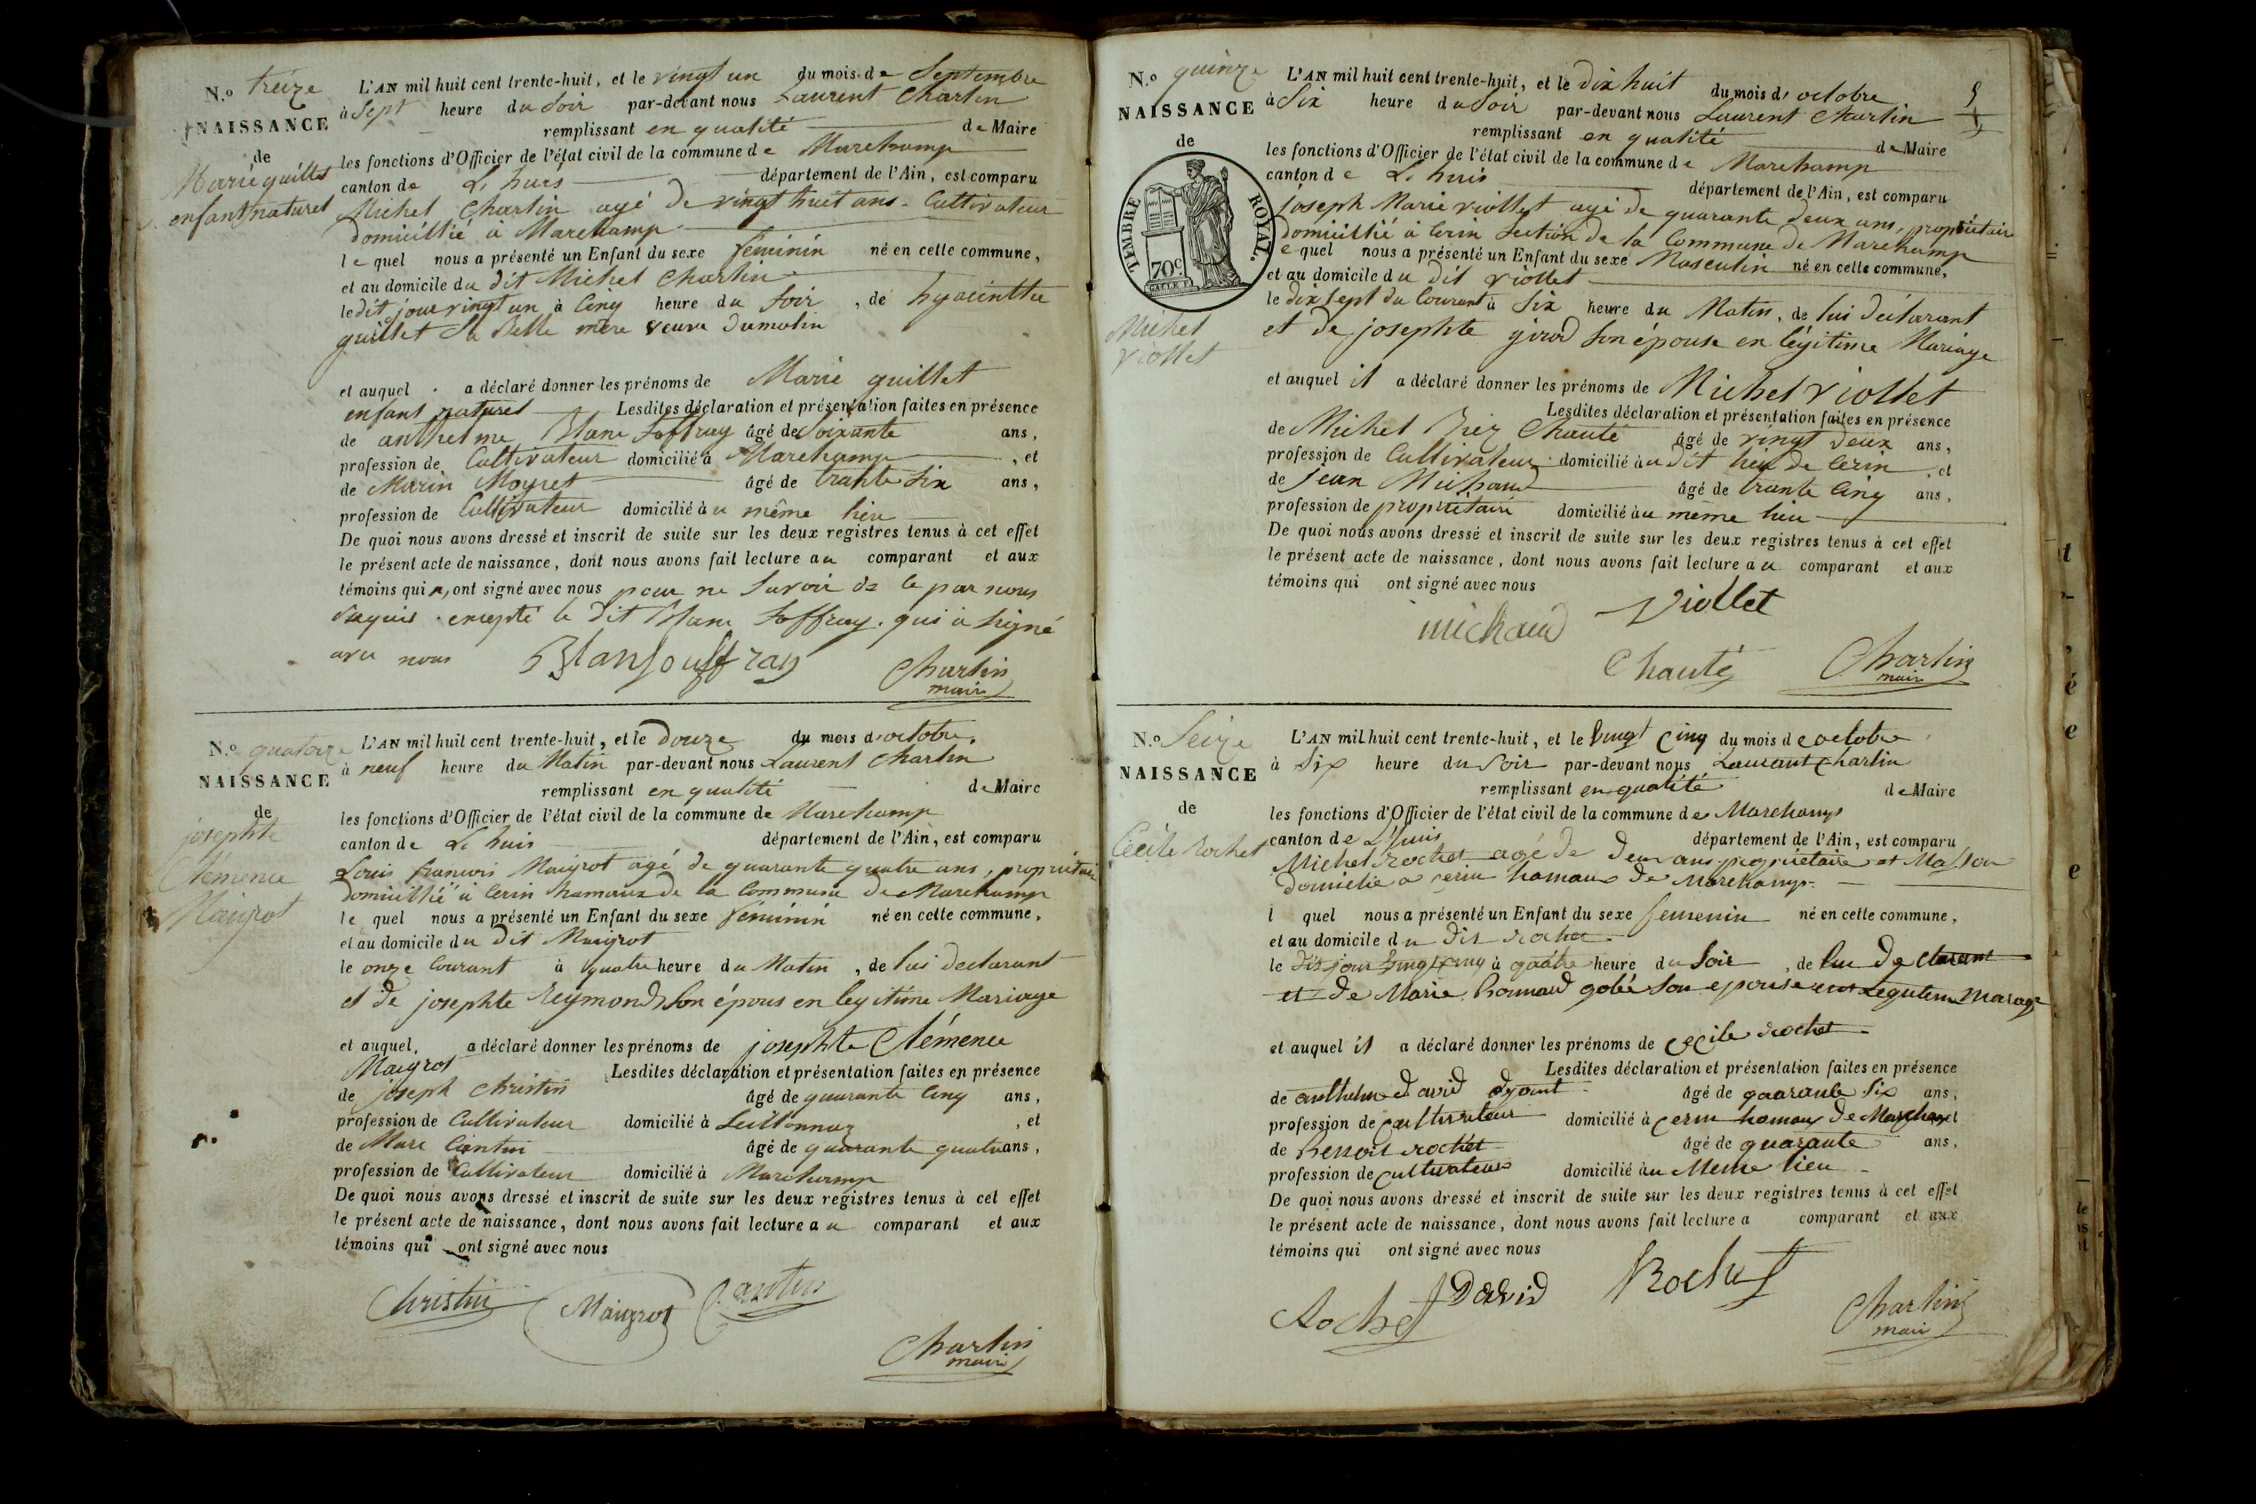 N.o treize
NAISSANCE
de
Marie guillet
enfant naturel
L'AN mil huit cent trente-huit, et le vingt un du mois de Septembre
à Sept heure du Soir par-devant nous Laurent Charlin
remplissant en qualité de Maire
les fonctions d'Officier de l'état civil de la commune de Marchamp
canton de L huis département de l'Ain, est comparu
Michel Charlin agé de vingt huit ans Cultivateur
domicillié à Marchamp
le quel nous a présenté un Enfant du sexe féminin né en cette commune,
et au domicile du dit Michel Charlin
le dit jour vingt un à Cinq heure du Soir, de hyacinthe
guillet Sa Belle mère veuve Dumolin
et auquel a déclaré donner les prénoms de Marie guillet
enfant naturel Lesdites déclaration et présentation faites en présence
de anthelme Blanc Joffray âgé de Soixante ans,
profession de Cultivateur domicilié à Marchamp, et
de Marin Moyret âgé de trante Six ans,
profession de Cultivateur domicilié au même lieu
De quoi nous avons dressé et inscrit de suite sur les deux registres tenus à cet effet
le présent acte de naissance, dont nous avons fait lecture au comparant et aux
témoins qui n, ont signé avec nous pour ne Savoir de ce par nous
requis excepté le dit Blanc Joffray qui à Signé
avec nous Blanjouffray Charlin
maire
N.o quatorze
NAISSANCE
de
josephte
Clémence
Maigrot
L'AN mil huit cent trente-huit, et le Douze du mois d'octobre
à neuf heure du Matin par-devant nous Laurent Charlin
remplissant en qualité de Maire
les fonctions d'Officier de l'état civil de la commune de Marchamp
canton de L huis département de l'Ain, est comparu
Louis francois Maigrot agé de quarante quatre ans, propriétaire
domicillié à Cerin hamaux de la Commune de Marchamp
le quel nous a présenté un Enfant du sexe féminin né en cette commune,
et au domicile du dit Maigrot
le onze Courant à quatre heure du Matin, de lui declarant
et de josephte Reymond Son épous en legitime Mariage
et auquel a déclaré donner les prénoms de josephte Clémence
Maigrot Lesdites déclaration et présentation faites en présence
de joseph Christin âgé de quarante Cinq ans,
profession de Cultivateur domicilié à Seillonnaz, et
de Marc Cantin âgé de quarante quatre ans,
profession de Cultivateur domicilié à Marchamp
De quoi nous avons dressé et inscrit de suite sur les deux registres tenus à cet effet
le présent acte de naissance, dont nous avons fait lecture au comparant et aux
témoins qui ont signé avec nous
Christin Maigrot Cantin
Charlin
maire
N.o quinze
NAISSANCE
de
TIMBRE ROYAL.
70c
Michel
Viollet
L'AN mil huit cent trente-huit, et le Dix huit du mois d'octobre
à Six heure du Soir par-devant nous Laurent Charlin
remplissant en qualité de Maire
les fonctions d'Officier de l'état civil de la commune de Marchamp
canton de L huis département de l'Ain, est comparu
joseph Marie viollet agé de quarante deux ans, propriétaire
domicillié à Cerin Section de la Commune de Marchamp
lequel nous a présenté un Enfant du sexe Masculin né en cette commune,
et au domicile du dit viollet
le dix sept du Courant à Six heure du Matin, de lui déclarant
et de josephte girod Son épouse en légitime Mariage
et auquel il a déclaré donner les prénoms de Michel Viollet
Lesdites déclaration et présentation faites en présence
de Michel Chauté âgé de vingt deux ans,
profession de Cultivateur domicilié au dit lieu de Cerin, et
de jean Michaud âgé de trante Cinq ans,
profession de propriétaire domicilié au même lieu
De quoi nous avons dressé et inscrit de suite sur les deux registres tenus à cet effet
le présent acte de naissance, dont nous avons fait lecture au comparant et aux
témoins qui ont signé avec nous
michaud Viollet
Chauté Charlin
maire
N.o Seize
NAISSANCE
de
Cécile Rochet
L'AN mil huit cent trente-huit, et le Vingt Cinq du mois de octobre
à Six heure du Soir par-devant nous Laurant Charlin
remplissant en qualité de Maire
les fonctions d'Officier de l'état civil de la commune de Marchamp
canton de L'huis département de l'Ain, est comparu
Michel rochet agé de Deux ans propriétaire et Masson
domicilié a cerin hamaux de Marchamp
l quel nous a présenté un Enfant du sexe femenin né en cette commune,
et au domicile du dit rochet
le dis jour Vingt cinq à quatre heure du Soir, de lui declarant
et de Marie Bonnaud gobé Son épouse en Legitime Mariage
et auquel il a déclaré donner les prénoms de Cecile rochet
Lesdites déclaration et présentation faites en présence
de anthelme David âgé de quarante Six ans,
profession de cultivateur domicilié à cerin hamaux de Marchamp et
de Benoit rochet âgé de quarante ans,
profession de cultivateur domicilié au Meme lieu
De quoi nous avons dressé et inscrit de suite sur les deux registres tenus à cet effet
le présent acte de naissance, dont nous avons fait lecture a comparant et aux
témoins qui ont signé avec nous
Rochet David Rochet
Charlin
maire